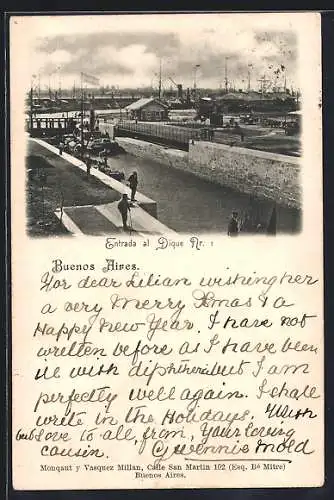 Entrada al Dique Nr. 1
Buenos Aires.
For dear Lilian wishing her
a very Merry Xmas & a
Happy New Year. I have not
written before as I have been
ill with diphtheria but I am
perfectly well again. I shall
write in the Holidays. With
love to all, from, Your loving
cousin. Wennie Mold
Monqaut y Vasquez Millan, Calle San Martin 102 (Esq. Bé Mitre)
Buenos Aires.